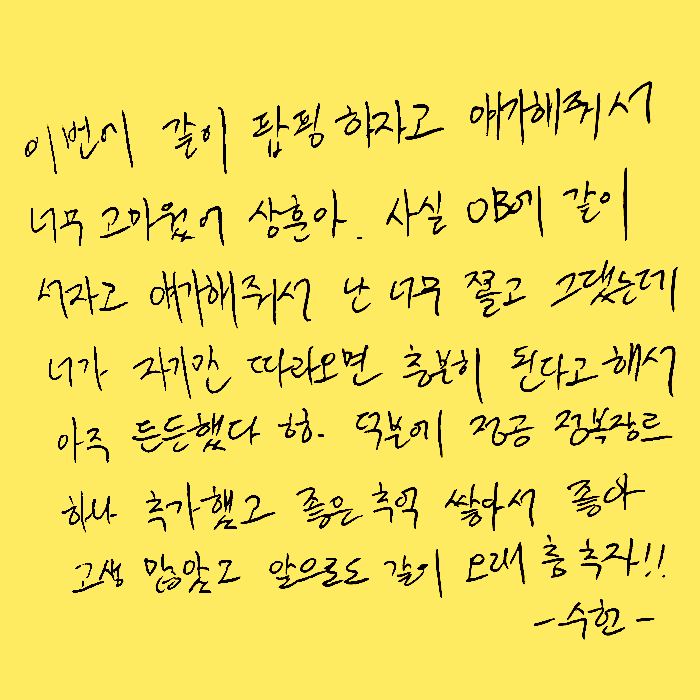 이번에 같이 팝핑 하자고 얘기해줘서
너무 고마웠어 상훈아. 사실 OB에 같이
서자고 얘기해줘서 난 너무 쫄고 그랬는데
너가 자기만 따라오면 충분히 된다고 해서
아주 든든했다 허허. 덕분에 전공 정복장르
하나 추가했고 좋은 추억 쌓아서 좋아
고생 많았고 앞으로도 같이 오래 춤 추자!!
- 수헌 -